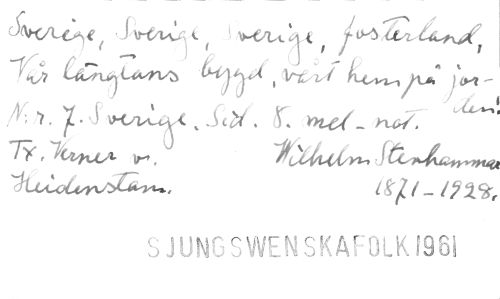 Sverige, Sverige, Sverige, fosterland,
Vår längtans bygd, vårt hem på jor-
den!
N:r. 7. Sverige. Sid. 8. mel-not.
Tx. Verner v. Wilhelm Stenhammar
Heidenstam. 1871-1928.
SJUNGSWENSKAFOLK1961